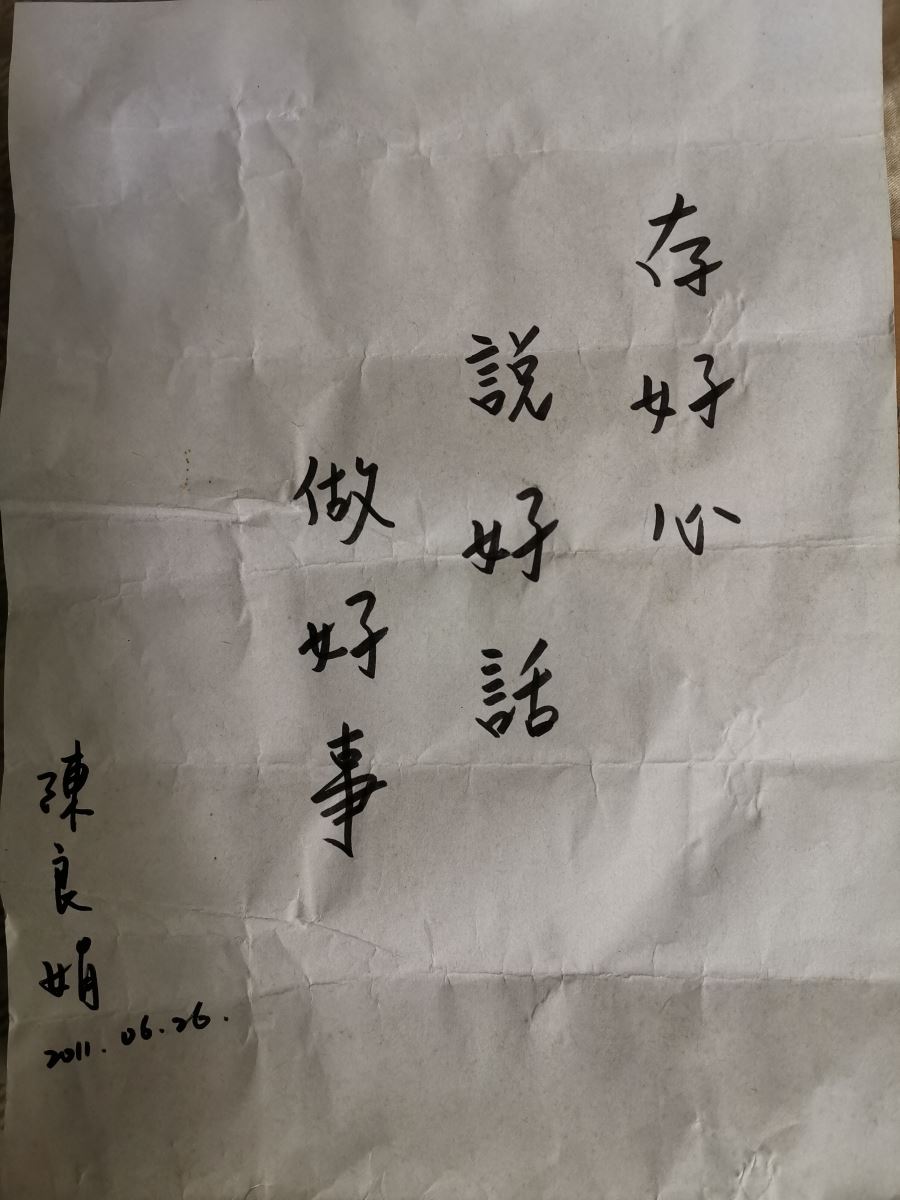 存好心
說好話
做好事
陳良娟
2011.06.26.